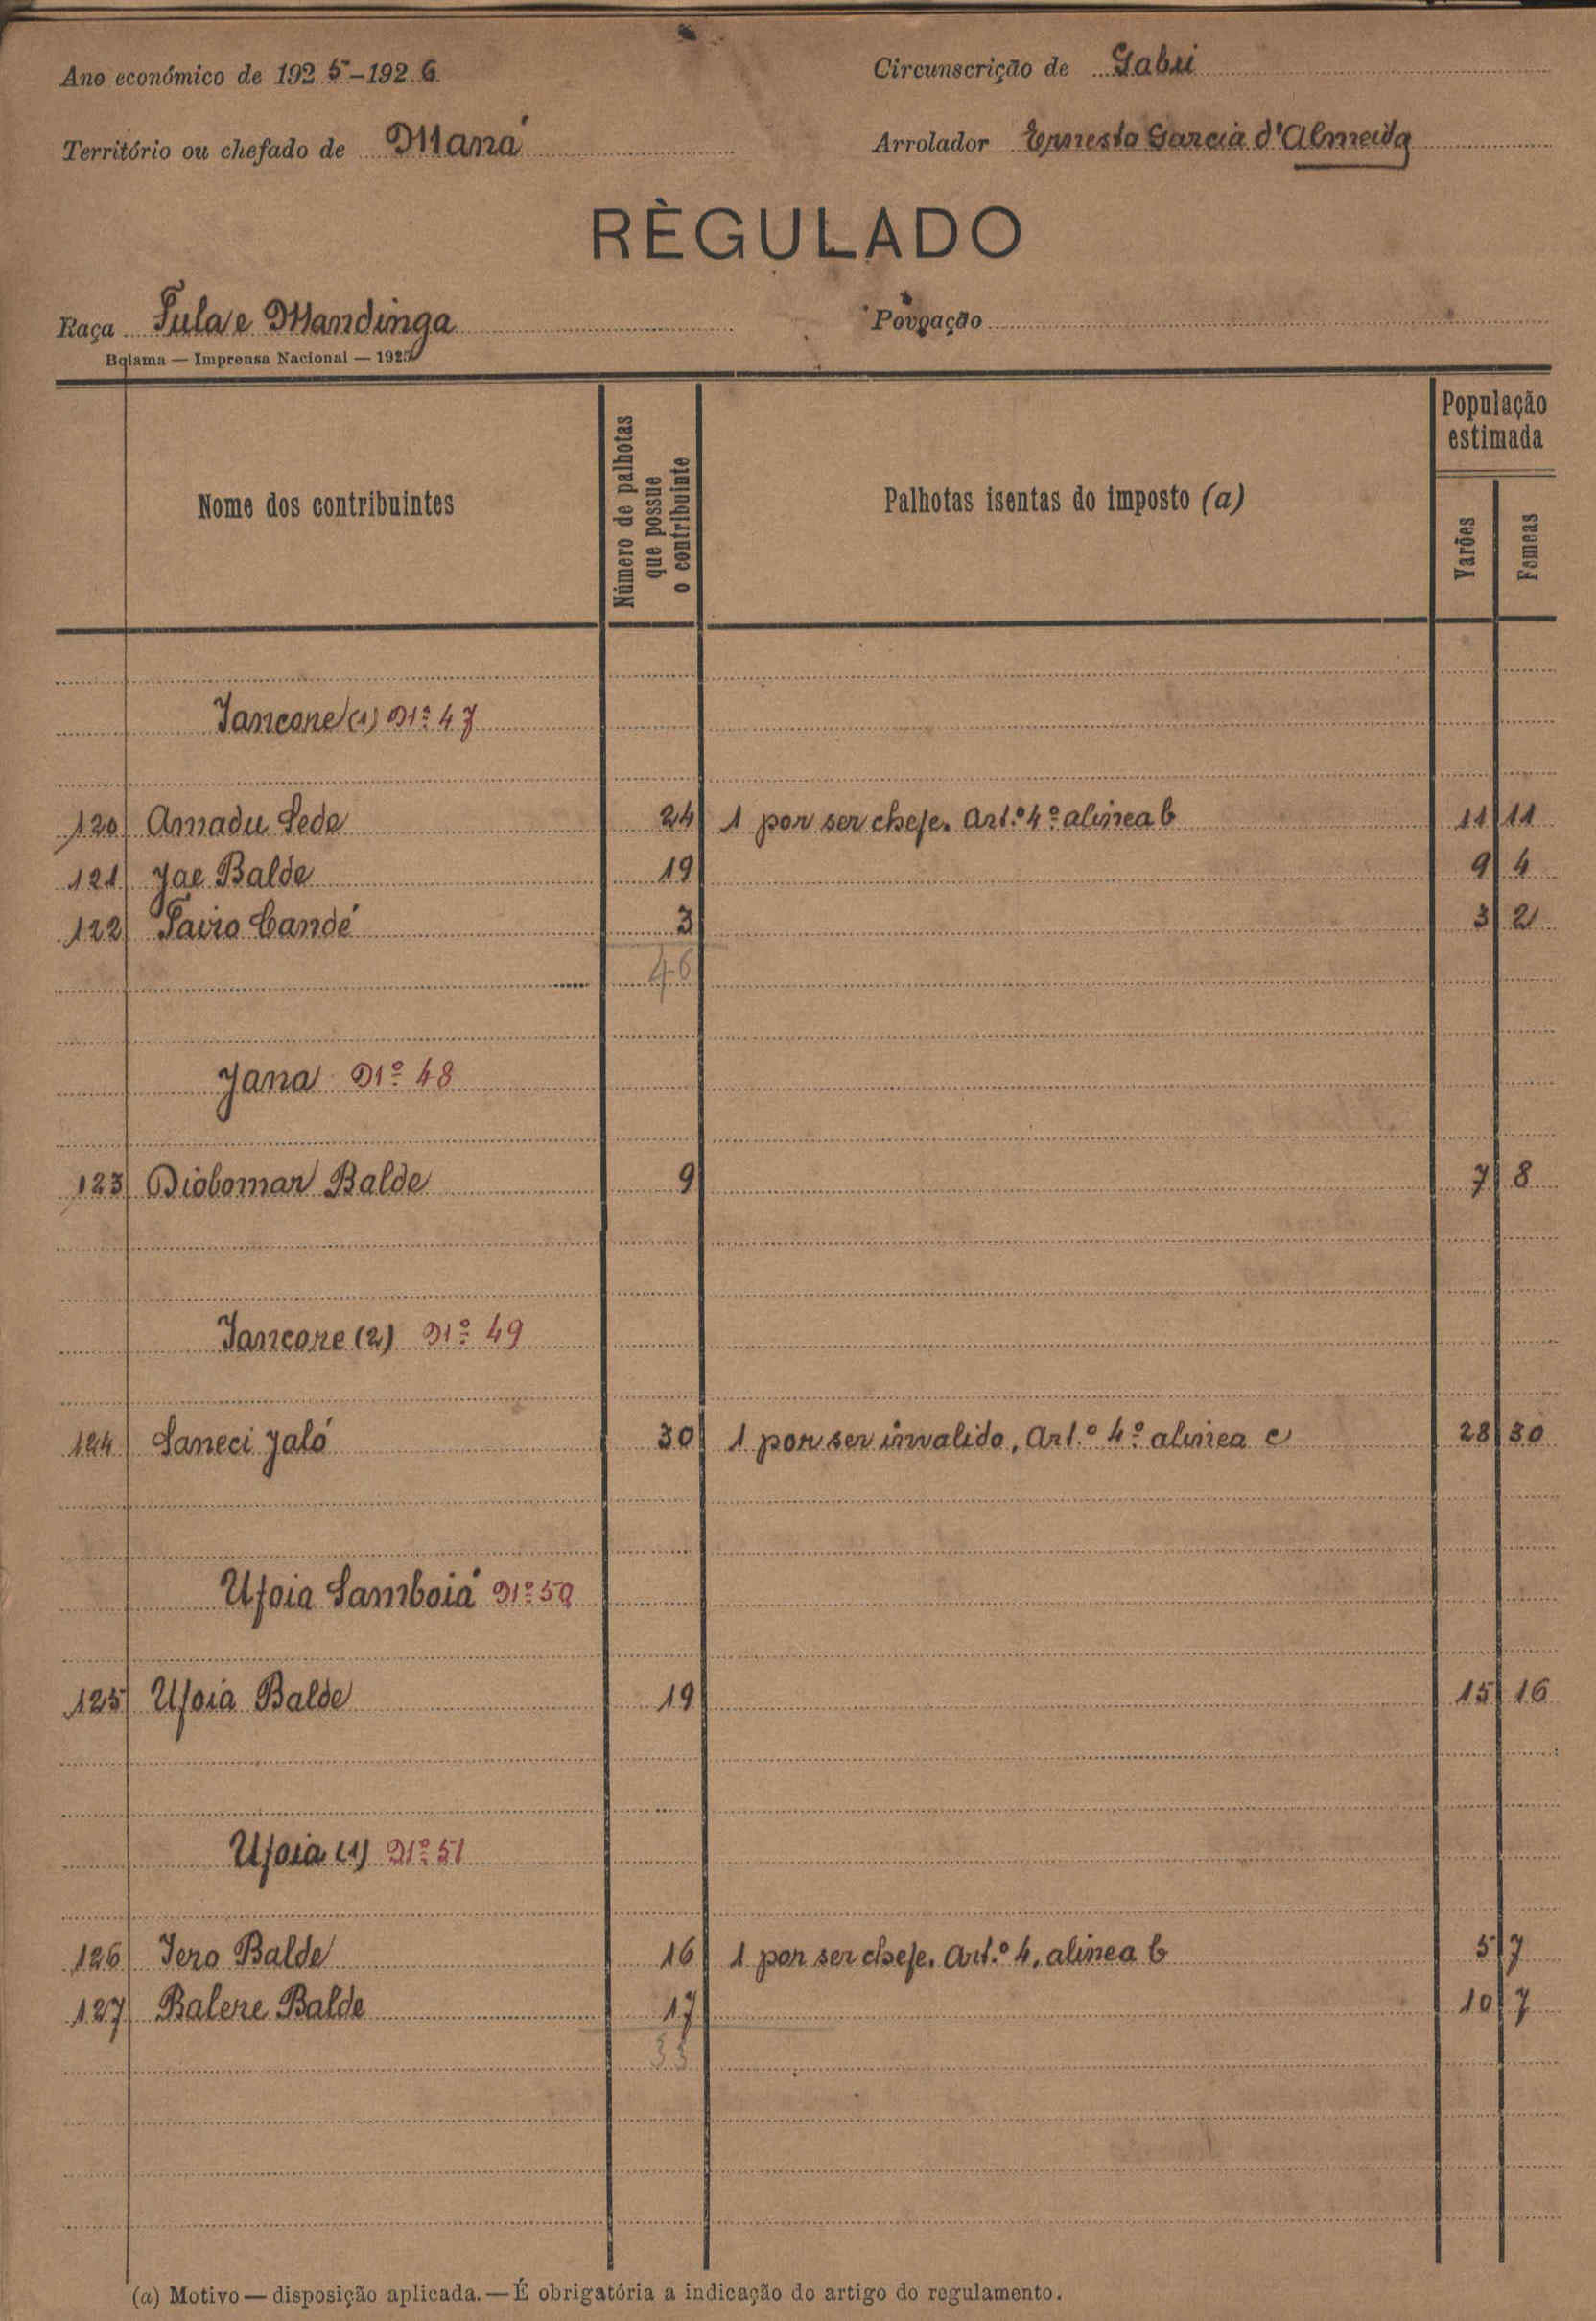 Ano económico de 1925-1926
Circunscrição de Gabu
Território ou chefado de Maná
Arrolador Ernesto Garcia d'Almeida
RÈGULADO
Raça Fula e Mandinga
Povoação
Bolama — Imprensa Nacional — 1925
Nome dos contribuintes
Número de palhotas que possue o contribuinte
Palhotas isentas do imposto (a)
População estimada
Varões
Femeas
Jancone (1) Nº 47
120 Amadu Sede 24 1 por ser chefe. Art.º 4º alinea b 11 11
121 Jae Balde 19 9 4
122 Candé 3 3 2
46
Jana Nº 48
123 Balde 9 7 8
Jancone (2) Nº 49
124 Saneci Jaló 30 1 por ser invalido, Art.º 4º alinea c 28 30
Ufoia Samboiá Nº 50
125 Ufoia Balde 19 15 16
Ufoia (1) Nº 51
126 Iero Balde 16 1 por ser chefe. Art.º 4, alinea b 5 7
127 Balere Balde 17 10 7
33
(a) Motivo — disposição aplicada. — É obrigatória a indicação do artigo do regulamento.